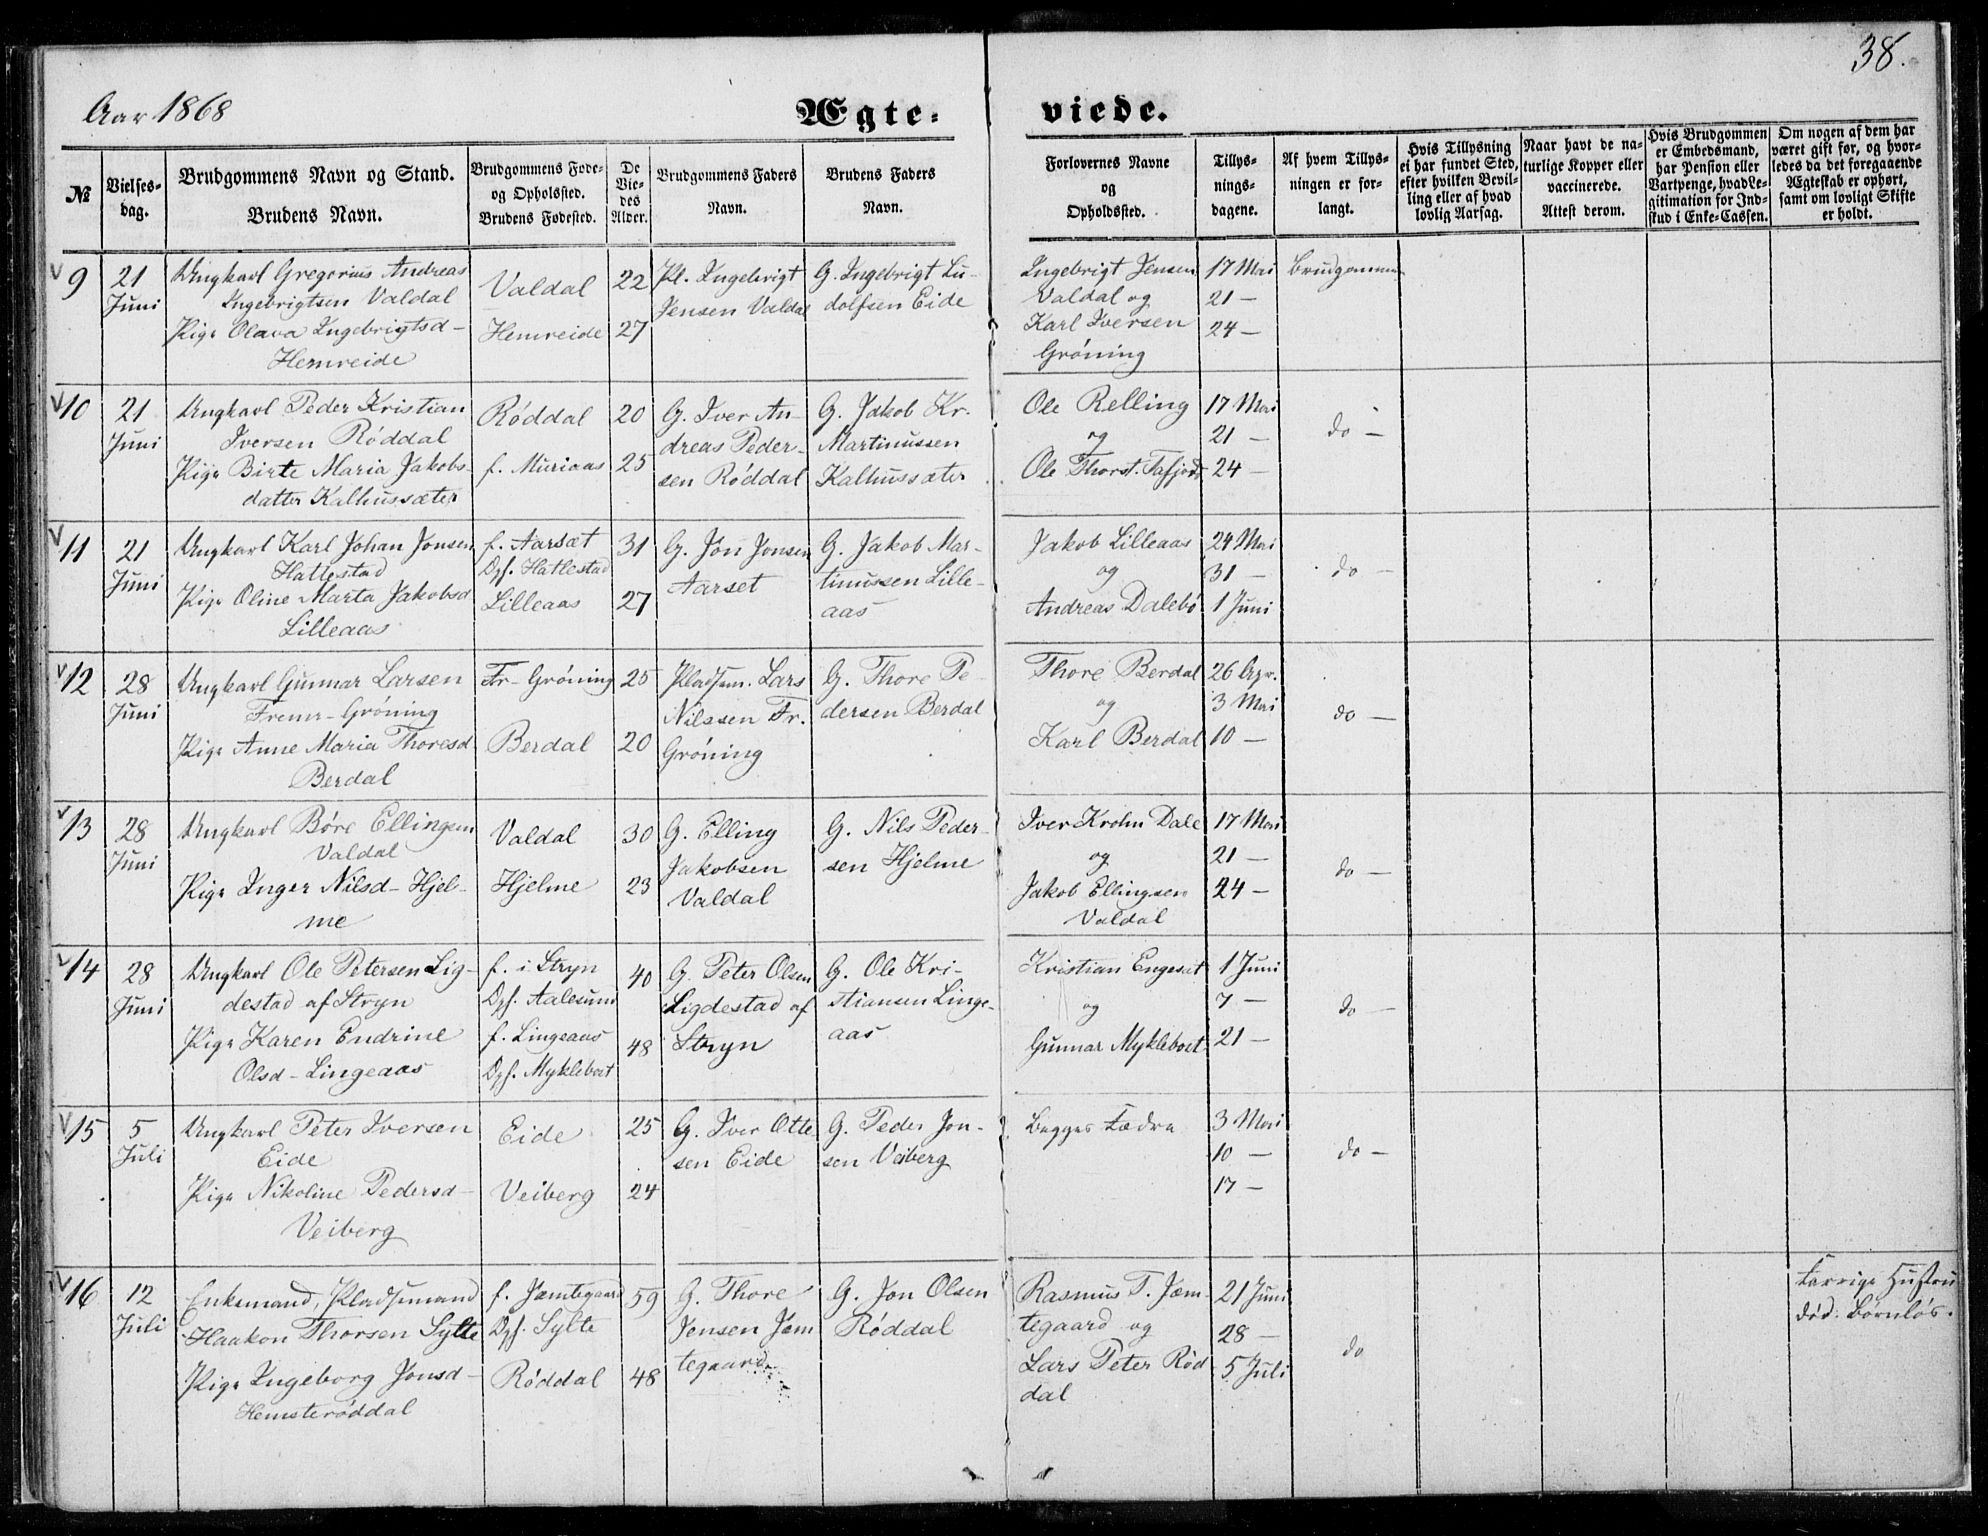 38.
Aar 1868
Ægte- viede.
№
Vielses-
dag.
Brudgommens Navn og Stand.
Brudens Navn.
Brudgommens Føde-
og Opholsted.
Brudens Fødested.
De
Vie-
des
Alder.
Brudgommens Faders
Navn.
Brudens Faders
Navn.
Forlovernes Navne
og
Opholdssted.
Tillys-
nings-
dagene.
Af hvem Tillys-
ningen er for-
langt.
Hvis Tillysning
ei har fundet Sted,
efter hvilken Bevil-
ling eller af hvad
lovlig Aarsag.
Naar havt de na-
turlige Kopper eller
vaccinerede.
Attest derom.
Hvis Brudgommen
er Embedsmand,
har Pension eller
Vartpenge, hvad Le-
gitimation for Ind-
skud i Enke-Cassen.
Om nogen af dem har
været gift før, og hvor-
ledes da det foregaaende
Ægteskab er ophørt,
samt om lovligt Skifte
er holdt.
9
21
Juni
Ungkarl Gregorius Andreas
Ingebrigtsen Valdal
Pige Olava Ingebrigtsd-
Hemreide
Valdal
Hemreide
22
27
Pl. Ingebrigt
Jensen Valdal
G. Ingebrigt Lu-
dolfsen Eide
Ingebrigt Jensen
Valdal og
Karl Iversen
Grøning
17 Mai
21 —
24 —
Brudgommen
10
21
Juni
Ungkarl Peder Kristian
Iversen Røddal
Pige Birte Maria Jakobs-
datter Kalhussæter
Røddal
f. Muriaas
20
25
G. Iver An-
dreas Peder-
sen Røddal
G. Jakob Kr.
Martinussen
Kalhussæter
Ole Relling
og
Ole Thorst. Tafjord
17 Mai
21 —
24 —
do —
11
21
Juni
Ungkarl Karl Johan Jonsen
Hattestad
Pige Oline Marta Jakobsd
Lilleaas
f. Aarsæt
Opf. Hatlestad
Lilleaas
31
27
G. Jon Jonsen
Aarset
G. Jakob Mar-
tinussen Lille-
aas
Jakob Lilleaas
og
Andreas Dalebø
24 Mai
31 —
1 Juni
do —
12
28
Juni
Ungkarl Gunnar Larsen
Fremr-Grøning
Pige Anne Maria Thoresd
Berdal
Fr- Grøning
Berdal
25
20
Pladsm. Lars
Nilssen Fr.
Grøning
G. Thore Pe-
dersen Berdal
Thore Berdal
og
Karl Berdal
26 Apr.
3 Mai
10 —
do —
13
28
Juni
Ungkarl Børe Ellingsen
Valdal
Pige Inger Nilsd- Hjel-
me
Valdal
Hjelme
30
23
G. Elling
Jakobsen
Valdal
G. Nils Peder-
sen Hjelme
Iver Krohn Dale
og
Jakob Ellingsen
Valdal
17 Mai
21 —
24 —
do —
14
28
Juni
Ungkarl Ole Petersen Lig-
destad af Stryn
Pige Karen Endrine
Olsd- Lingeaas
f. i Stryn
Opf. Aalesund
f. Lingeaas
Opf. Myklebost
40
48
G. Peter Olsen
Ligdestad af
Stryn
G. Ole Kri-
stiansen Linge-
aas
Kristian Engeset
og
Gunnar Myklebost
1 Juni
7 —
21 —
do —
15
5
Juli
Ungkarl Peter Iversen
Eide
Pige Nikoline Pedersd-
Veiberg
Eide
Veiberg
25
24
G. Iver Otte
sen Eide
G. Peder Jon-
sen Veiberg
Begges Fædre
3 Mai
10 —
17 —
do —
16
12
Juli
Enkemand, Pladsmand
Haakon Thorsen Sylte
Pige Ingeborg Jonsd-
Hemsterøddal
f. Jæmtegaard
Opf. Sylte
Røddal
59
48
G. Thore
Jensen Jæm
tegaard
G. Jon Olsen
Røddal
Rasmus T. Jæm-
tegaard og
Lars Peter Rød
dal
21 Juni
28 —
5 Juli
do
Forrige Hustru
død. Børnløs.